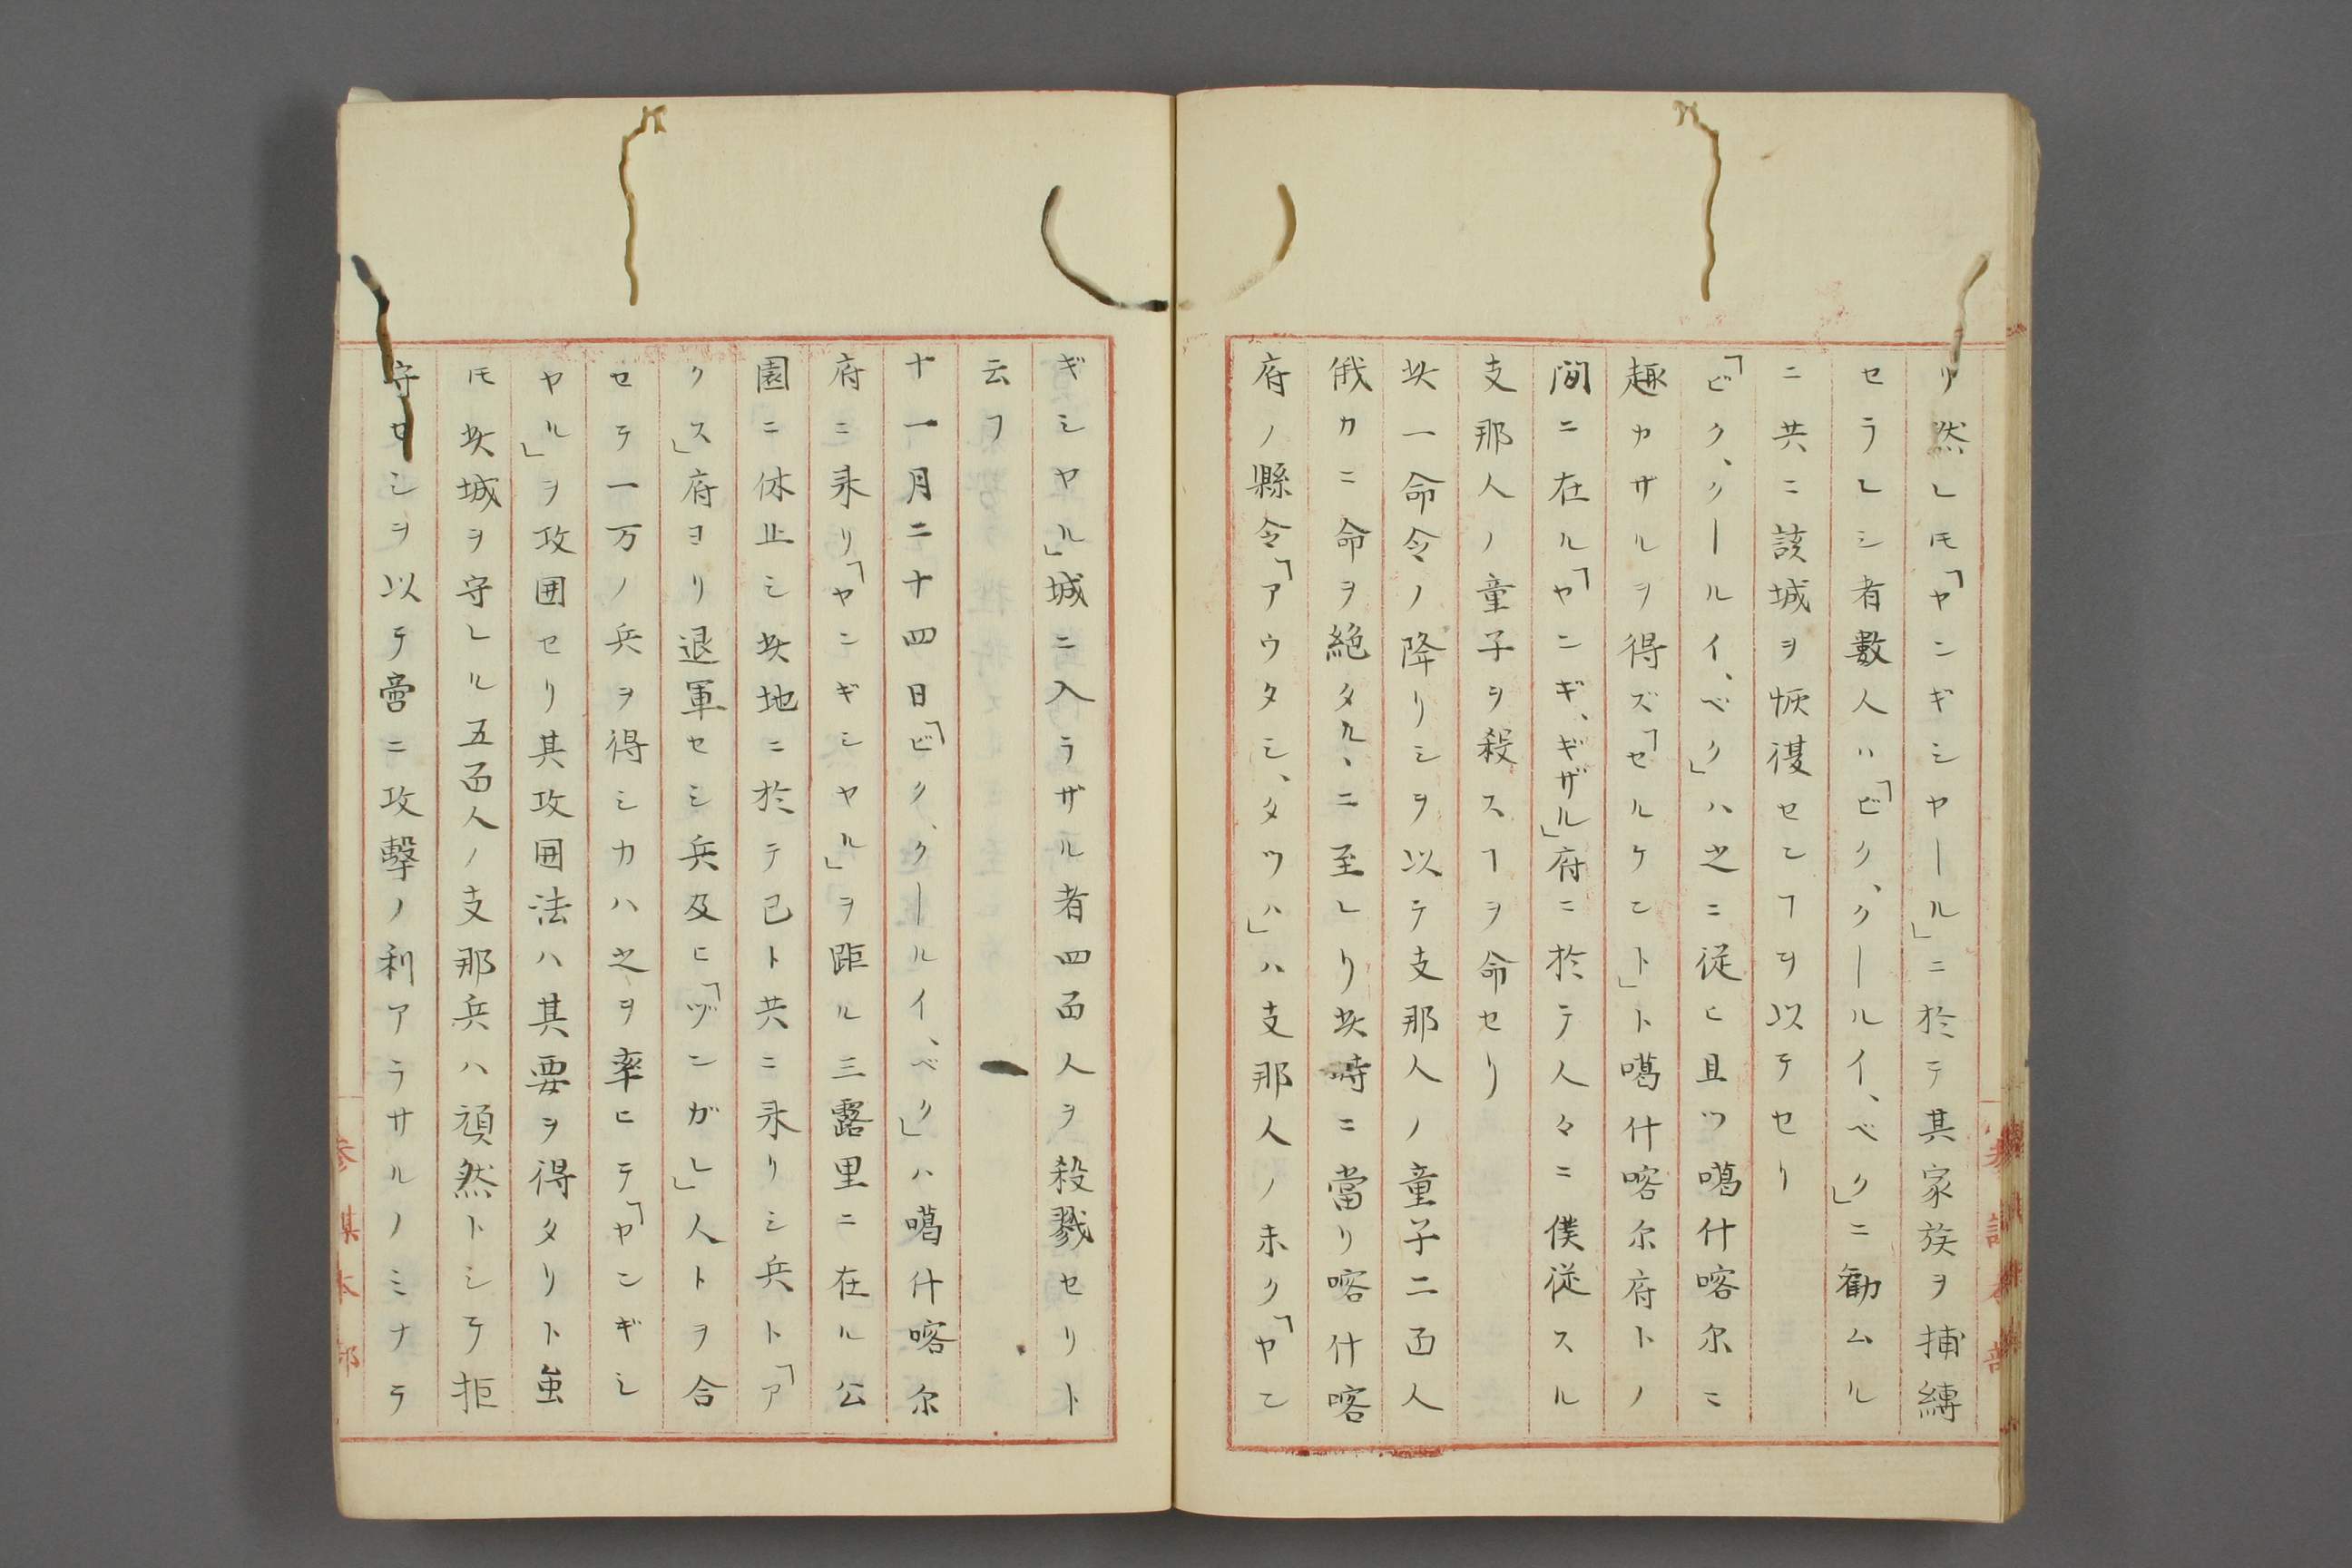 リ然レ𪜈「ヤンギシヤール」ニ於テ其家族ヲ捕縛
セラレシ者數人ハ「ビク、クールイ、ベク」ニ勸ムル
ニ共ニ該城ヲ恢復センヿヲ以テセリ
「ビク、クールイ、ベク」ハ之ニ従ヒ且ツ噶什喀尔ニ
趣カザルヲ得ズ「セルケント」ト噶什喀尔府トノ
間ニ在ル「ヤンギ、ギザル」府ニ於テ人々ニ僕従スル
支那人ノ童子ヲ殺スヿヲ命セリ
此一命令ノ降リシヲ以テ支那人ノ童子二百人
俄カニ命ヲ絶タルヽニ至レリ此時ニ當リ喀什喀
府ノ縣令「アウタシ、タツハ」ハ支那人ノ未ク「ヤン
ギシヤル」城ニ入ラザル者四百人ヲ殺戮セリト
云フ
十一月二十四日「ビク、クールイ、ベク」ハ噶什喀尔
府ニ来リ「ヤンギシヤル」ヲ距ル三露里ニ在ル公
園ニ休止シ此地ニ於テ已ト共ニ来リシ兵ト「ア
クス」府ヨリ退軍セシ兵及ヒ「ヅンガレ」人トヲ合
セテ一万ノ兵ヲ得シカハ之ヲ率ヒテ「ヤンギシ
ヤル」ヲ攻囲セリ其攻囲法ハ其要ヲ得タリト虽
𪜈此城ヲ守レル五百人ノ支那兵ハ頑然トシテ拒
守セシヲ以テ啻ニ攻撃ノ利アラサルノミナラ
参謀本部